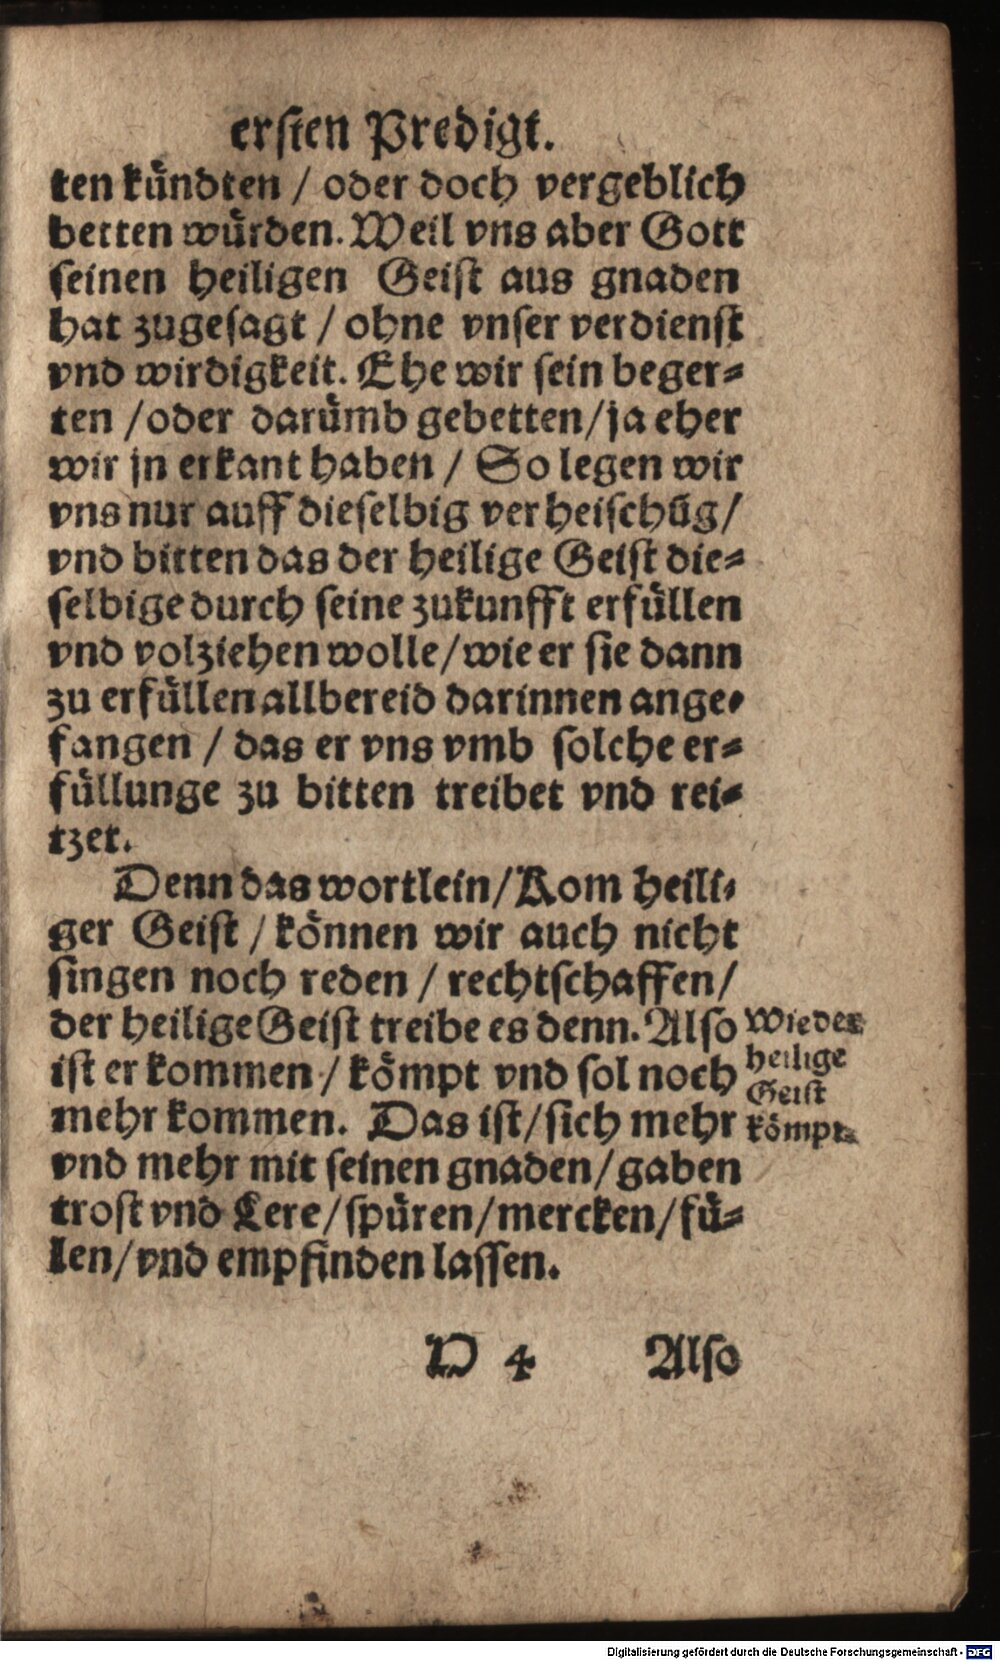 ersten Predigt.
ten kündten / oder doch vergeblich
betten würden. Weil vns aber Gott
seinen heiligen Geist aus gnaden
hat zugesagt / ohne vnser verdienst
vnd wirdigkeit. Ehe wir sein beger-
ten / oder darümb gebetten / ja eher
wir jn erkant haben / So legen wir
vns nur auff dieselbig verheischũg /
vnd bitten das der heilige Geist die-
selbige durch seine zukunfft erfüllen
vnd volziehen wolle / wie er sie dann
zu erfüllen allbereid darinnen ange-
fangen / das er vns vmb solche er-
füllunge zu bitten treibet vnd rei-
tzet.
Denn das wortlein / Kom heili-
ger Geist / können wir auch nicht
singen noch reden / rechtschaffen /
der heilige Geist treibe es denn. Also
ist er kommen / kömpt vnd sol noch
mehr kommen. Das ist / sich mehr
vnd mehr mit seinen gnaden / gaben
trost vnd Lere / spüren / mercken / fü-
len / vnd empfinden lassen.
Wie der
heilige
Geist
kömpt.
D 4 Also
Digitalisierung gefördert durch die Deutsche Forschungsgemeinschaft - DFG